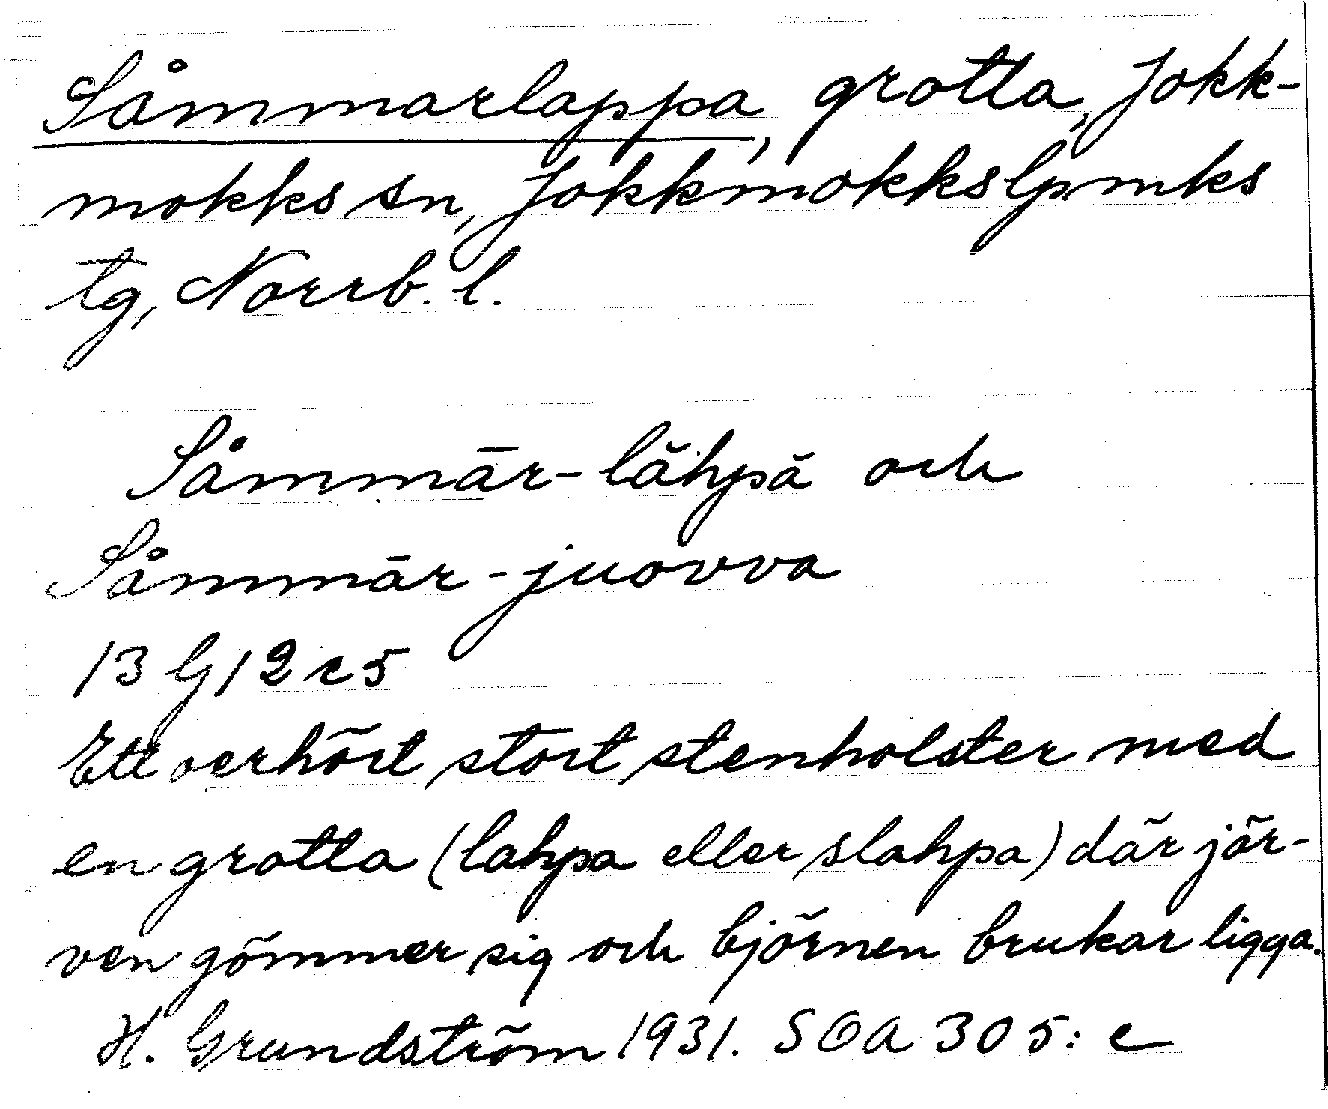 Såmmarlappa, grotta, Jokk-
mokks sn, Jokkmokks lpmks
tg, Norrb. l.
Såmmār-lăhpă och
Såmmār-juovva
13 G 12 c 5
Ett oerhört stort stenholster med
en grotta (lahpa eller slahpa) där jär-
ven gömmer sig och björnen brukar ligga.
H. Grundström 1931. SOA 305: c